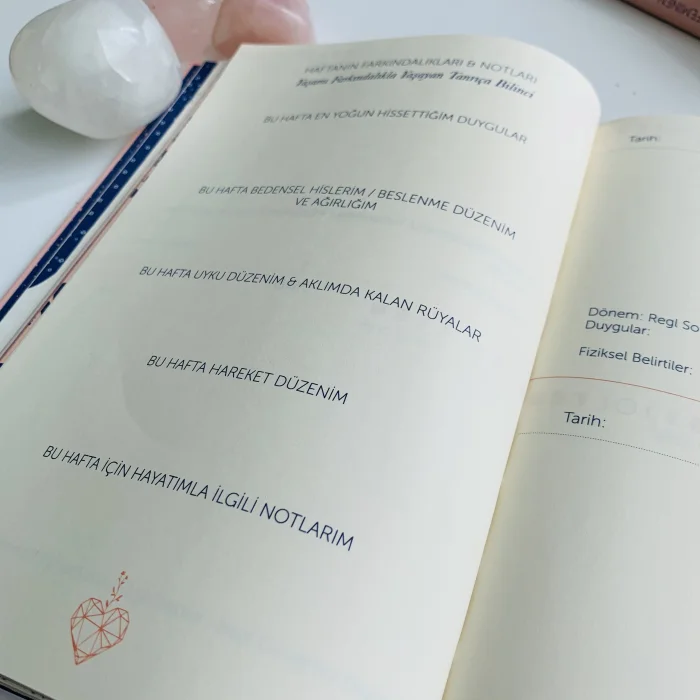 HAFTANIN FARKINDALIKLARI & NOTLARI
Yaşamı Farkındalıkla Yaşayan Tanrıça Bilinci
BU HAFTA EN YOĞUN HİSSETTİĞİM DUYGULAR
BU HAFTA BEDENSEL HİSLERİM / BESLENME DÜZENİM
VE AĞIRLIĞIM
BU HAFTA UYKU DÜZENİM & AKLIMDA KALAN RÜYALAR
BU HAFTA HAREKET DÜZENİM
BU HAFTA İÇİN HAYATIMLA İLGİLİ NOTLARIM
Tarih:
Dönem: Regl So
Duygular:
Fiziksel Belirtiler:
Tarih: